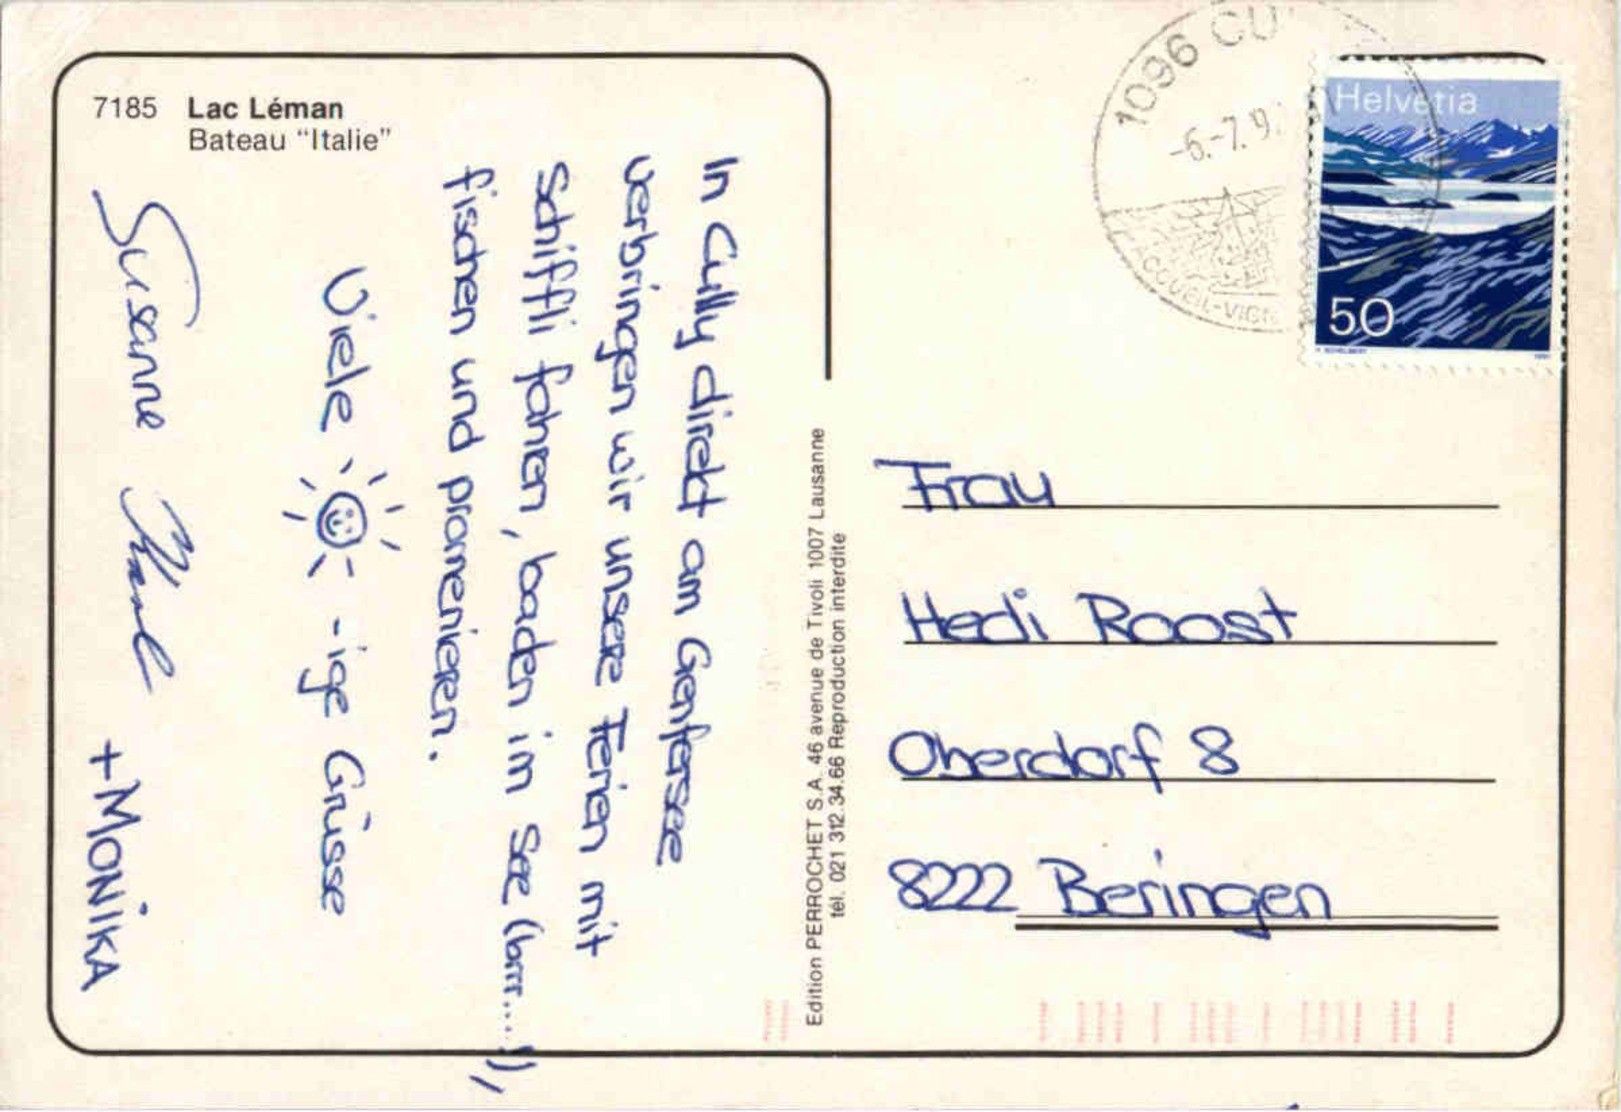 7185 Lac Léman
Bateau "Italie"
In Cully direkt am Genfersee
verbringen wir unsere Ferien mit
Schiffli fahren, baden im See (brrr....!),
fischen und promenieren.
Viele -ige Grüsse
Susanne
+ MONIKA
Edition PERROCHET S.A. 46 avenue de Tivoli 1007 Lausanne
tél. 021 312.34.66 Reproduction interdite
1096 CU
-6.-7.9
CCUEIL-VIGN
Helvetia
50
Frau
Hedi Roost
Oberdorf 8
8222 Beringen